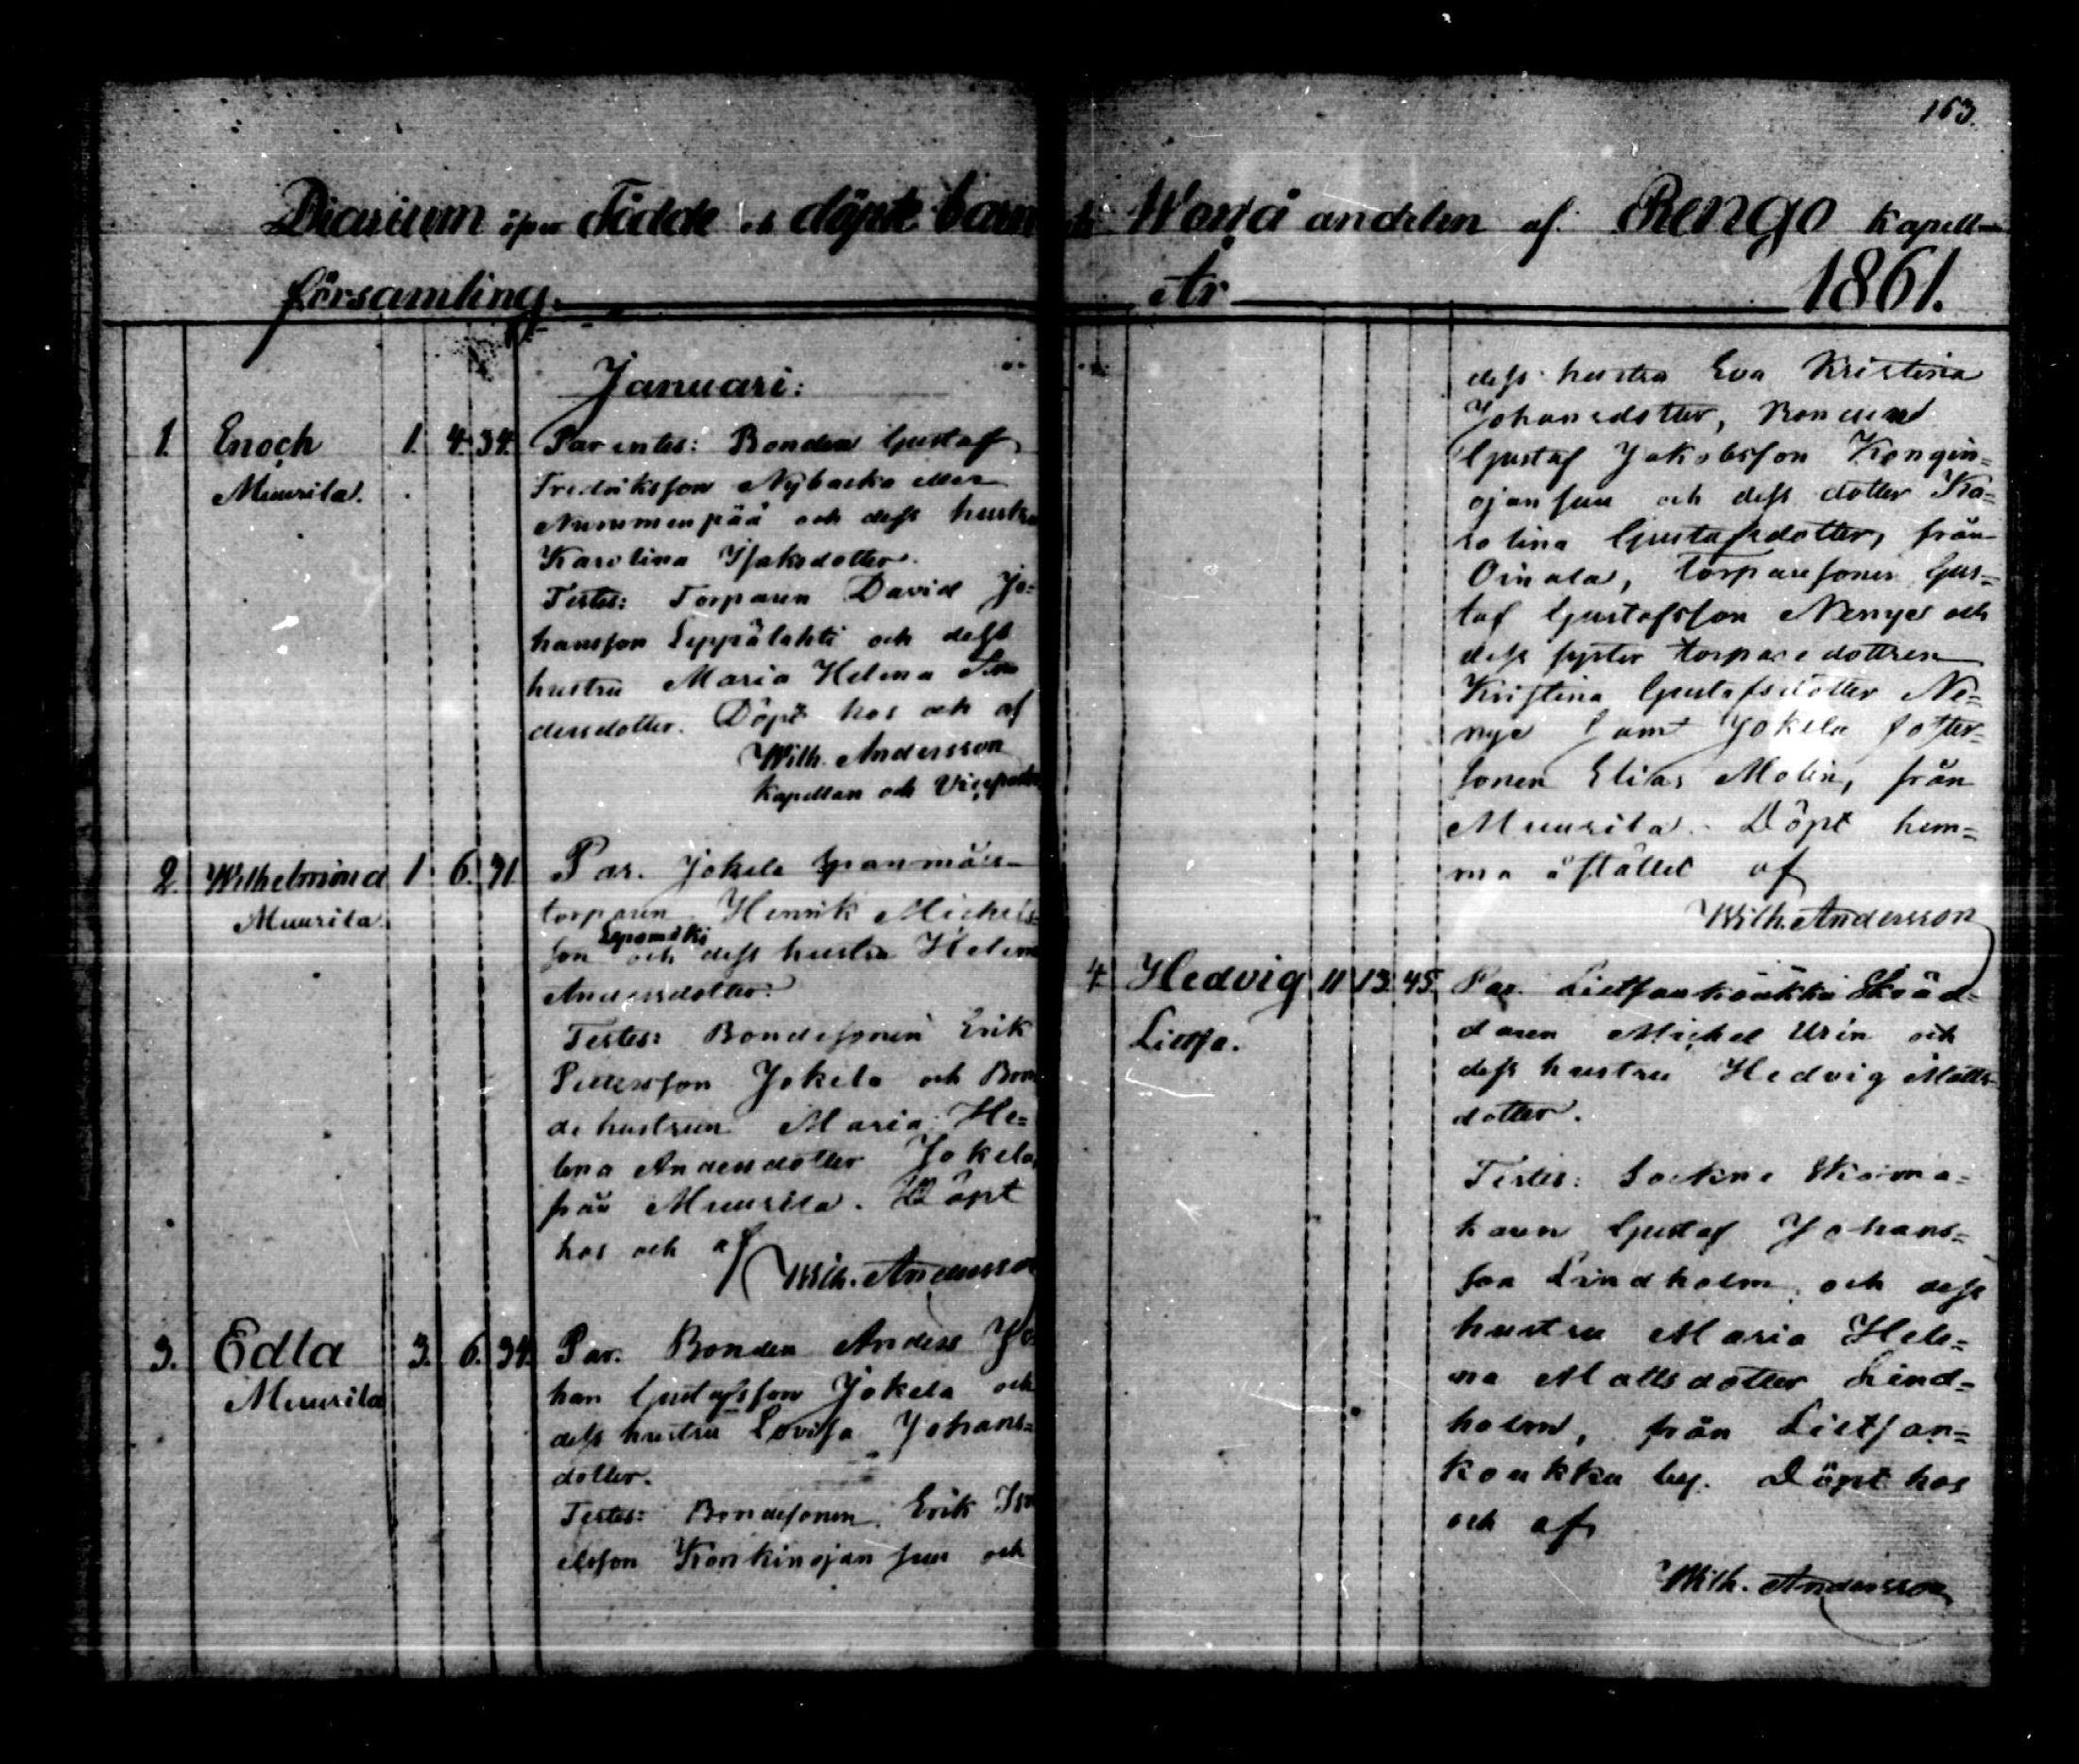 163.
Diarium öfver Födde och döpte barn Wonå andelen af Rengo Kapell-
församling. År 1861.
Januari:
1. Enoch 1. 4. 34. Parentes: Bonden Gustaf
Muurila. Fredriksson Nybacka eller
Nummenpää och dess hustru
Karolina Isaksdotter.
Testes: Torparen David Jo=
hansson Leppälahti och dess
hustru Maria Helena
dersdotter. Döpt hos och af
Wilh. Andersson
Kapellan och Vicepastor
2. Wilhelmina 1. 6. 31 Par. Jokela Spanmåls
Muurila. torparen Henrik Michels=
son Lepomäki och dess hustru Helena
Andersdotter.
Testes: Bondesonen Erik
Pettersson Jokela och Bon
de hustrun Maria He=
lena Andersdotter Jokela,
från Muurila. Döpt
hos och af
Wilh. Andersson
3. Edla 3. 6. 34. Par. Bonden Anders Jo
Muurila han Gustafsson Jokela och
dess hustru Lovisa Johans=
dotter.
Testes: Bondesonen Erik
elsson Konkinojan suu och
dess hustru Eva Kristina
Johansdotter, Bonden
Gustaf Jakobsson Kongin=
ojansuu och dess dotter Ka=
rolina Gustafsdotter, från
Oinala, Torparesonen Gus=
taf Gustafsson Nenye och
dess syster torparedottren
Kristina Gustafsdotter Ne=
nye samt Jokela foster=
sonen Elias Molin, från
Muurila. Döpt hem=
ma å stället af
Wilh. Andersson
4. Hedvig 11 13. 45. Par. Lietsankoukku Skräd=
Lietsa. daren Michel Urén och
dess hustru Hedvig Matts
dotter.
Testes: Sockne Skoma=
karen Gustaf Johans=
son Lindholm och dess
hustru Maria Hele=
na Mattsdotter Lind=
holm, från Lietsan=
koukku by. Döpt hos
och af
Wilh. Andersson